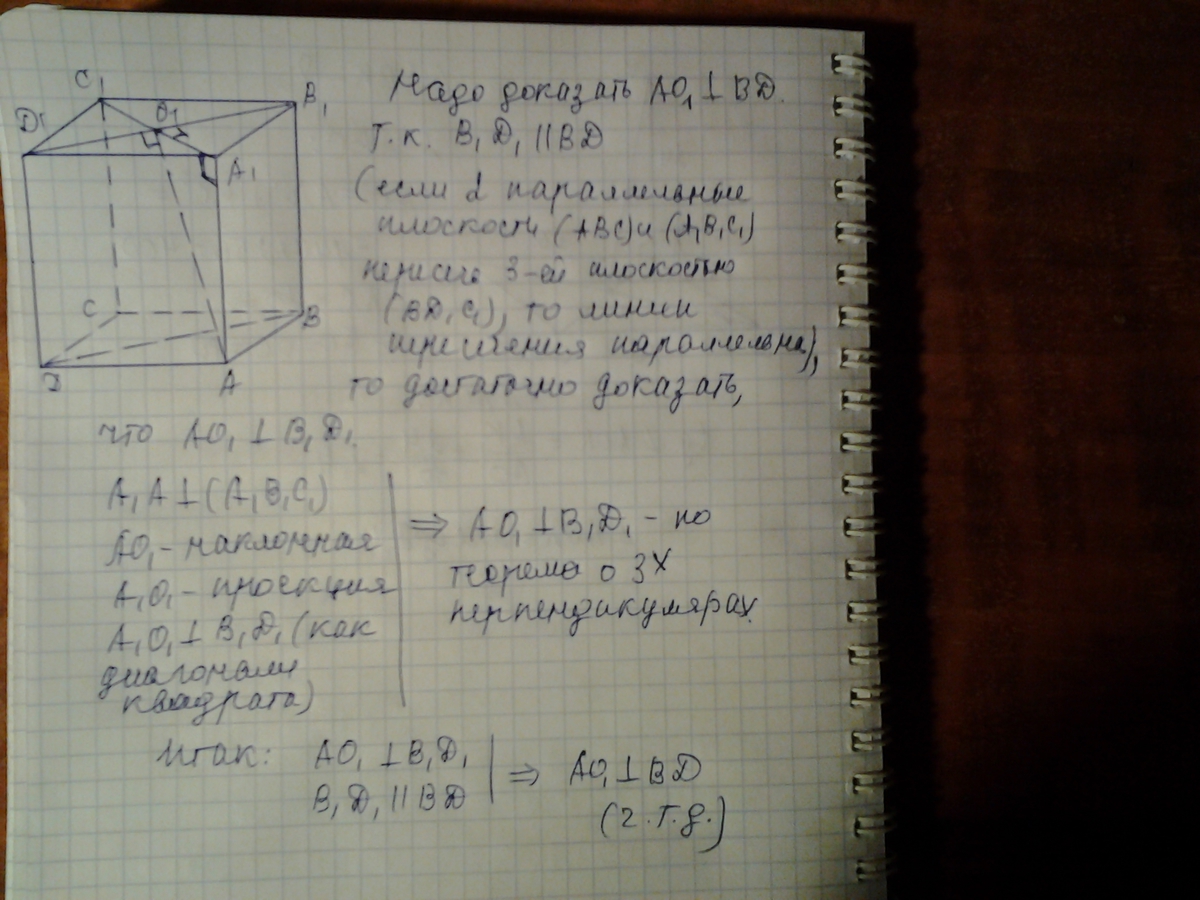 C₁
B₁
D₁
O₁
A₁
C
B
D
A
Надо доказать AO₁⊥BD.
Т.к. B₁D₁||BD
(если 2 параллельные
плоскости (ABC) и (A₁B₁C₁)
пересечь 3-ей плоскостью
(BD₁C₁), то линии
пересечения параллельны),
то достаточно доказать,
что AO₁⊥B₁D₁.
A₁A⊥(A₁B₁C₁)
AO₁ - наклонная
A₁O₁ - проекция
A₁O₁⊥B₁D₁ (как
диагонали
квадрата)
⇒ AO₁⊥B₁D₁ - по
теореме о 3х
перпендикулярах.
Итак: AO₁⊥B₁D₁
B₁D₁||BD
⇒ AO₁⊥BD
(ч.т.д.)